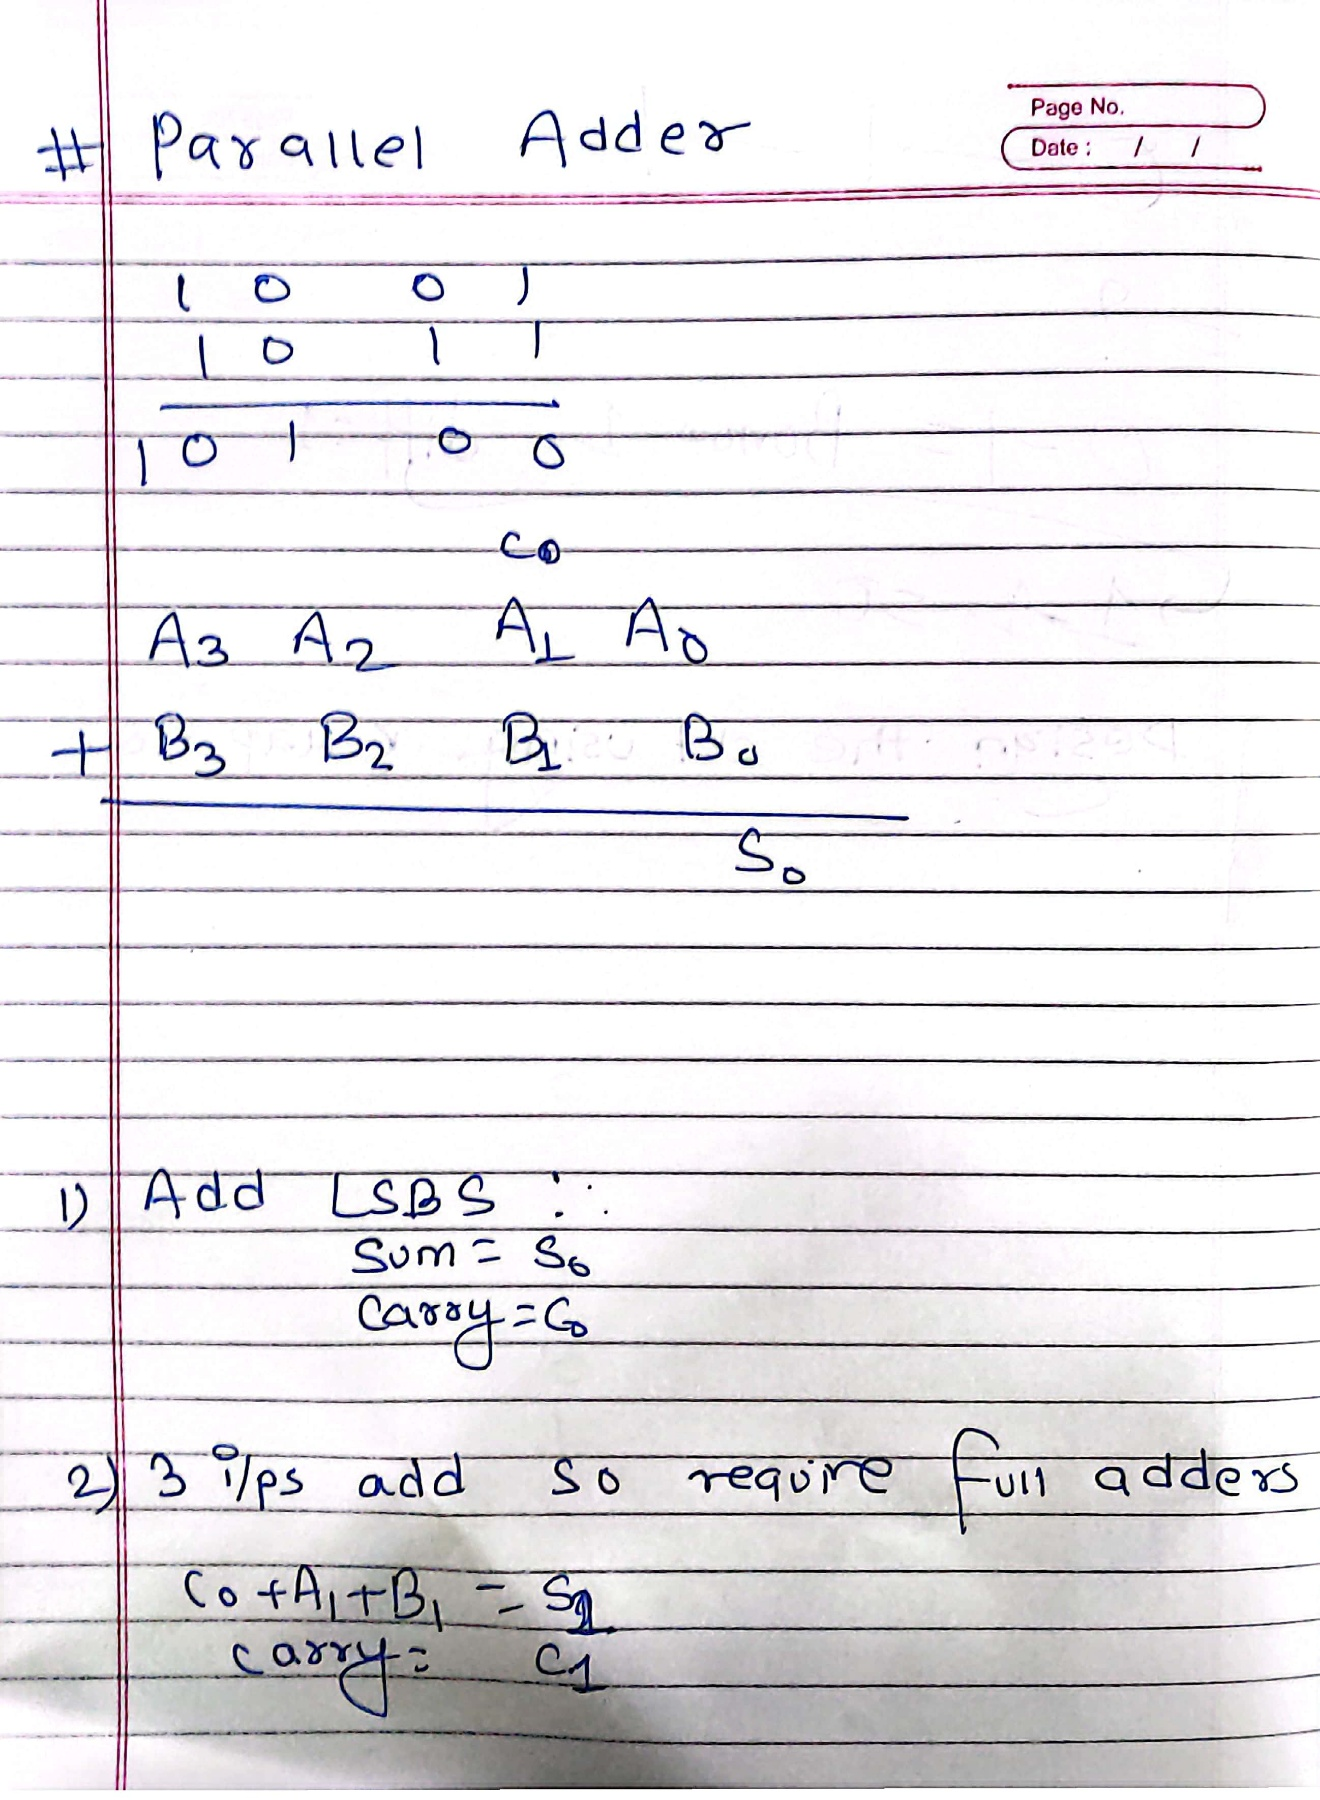 Page No.
Date : / /
# Parallel Adder
1 0 0 1
1 0 1 1
1 0 1 0 0
C0
A3 A2 A1 A0
+ B3 B2 B1 B0
S0
1) Add LSBS :.
Sum = S0
Carry = C0
2) 3 i/ps add so require full adders
C0 + A1 + B1 = S1
carry = C1